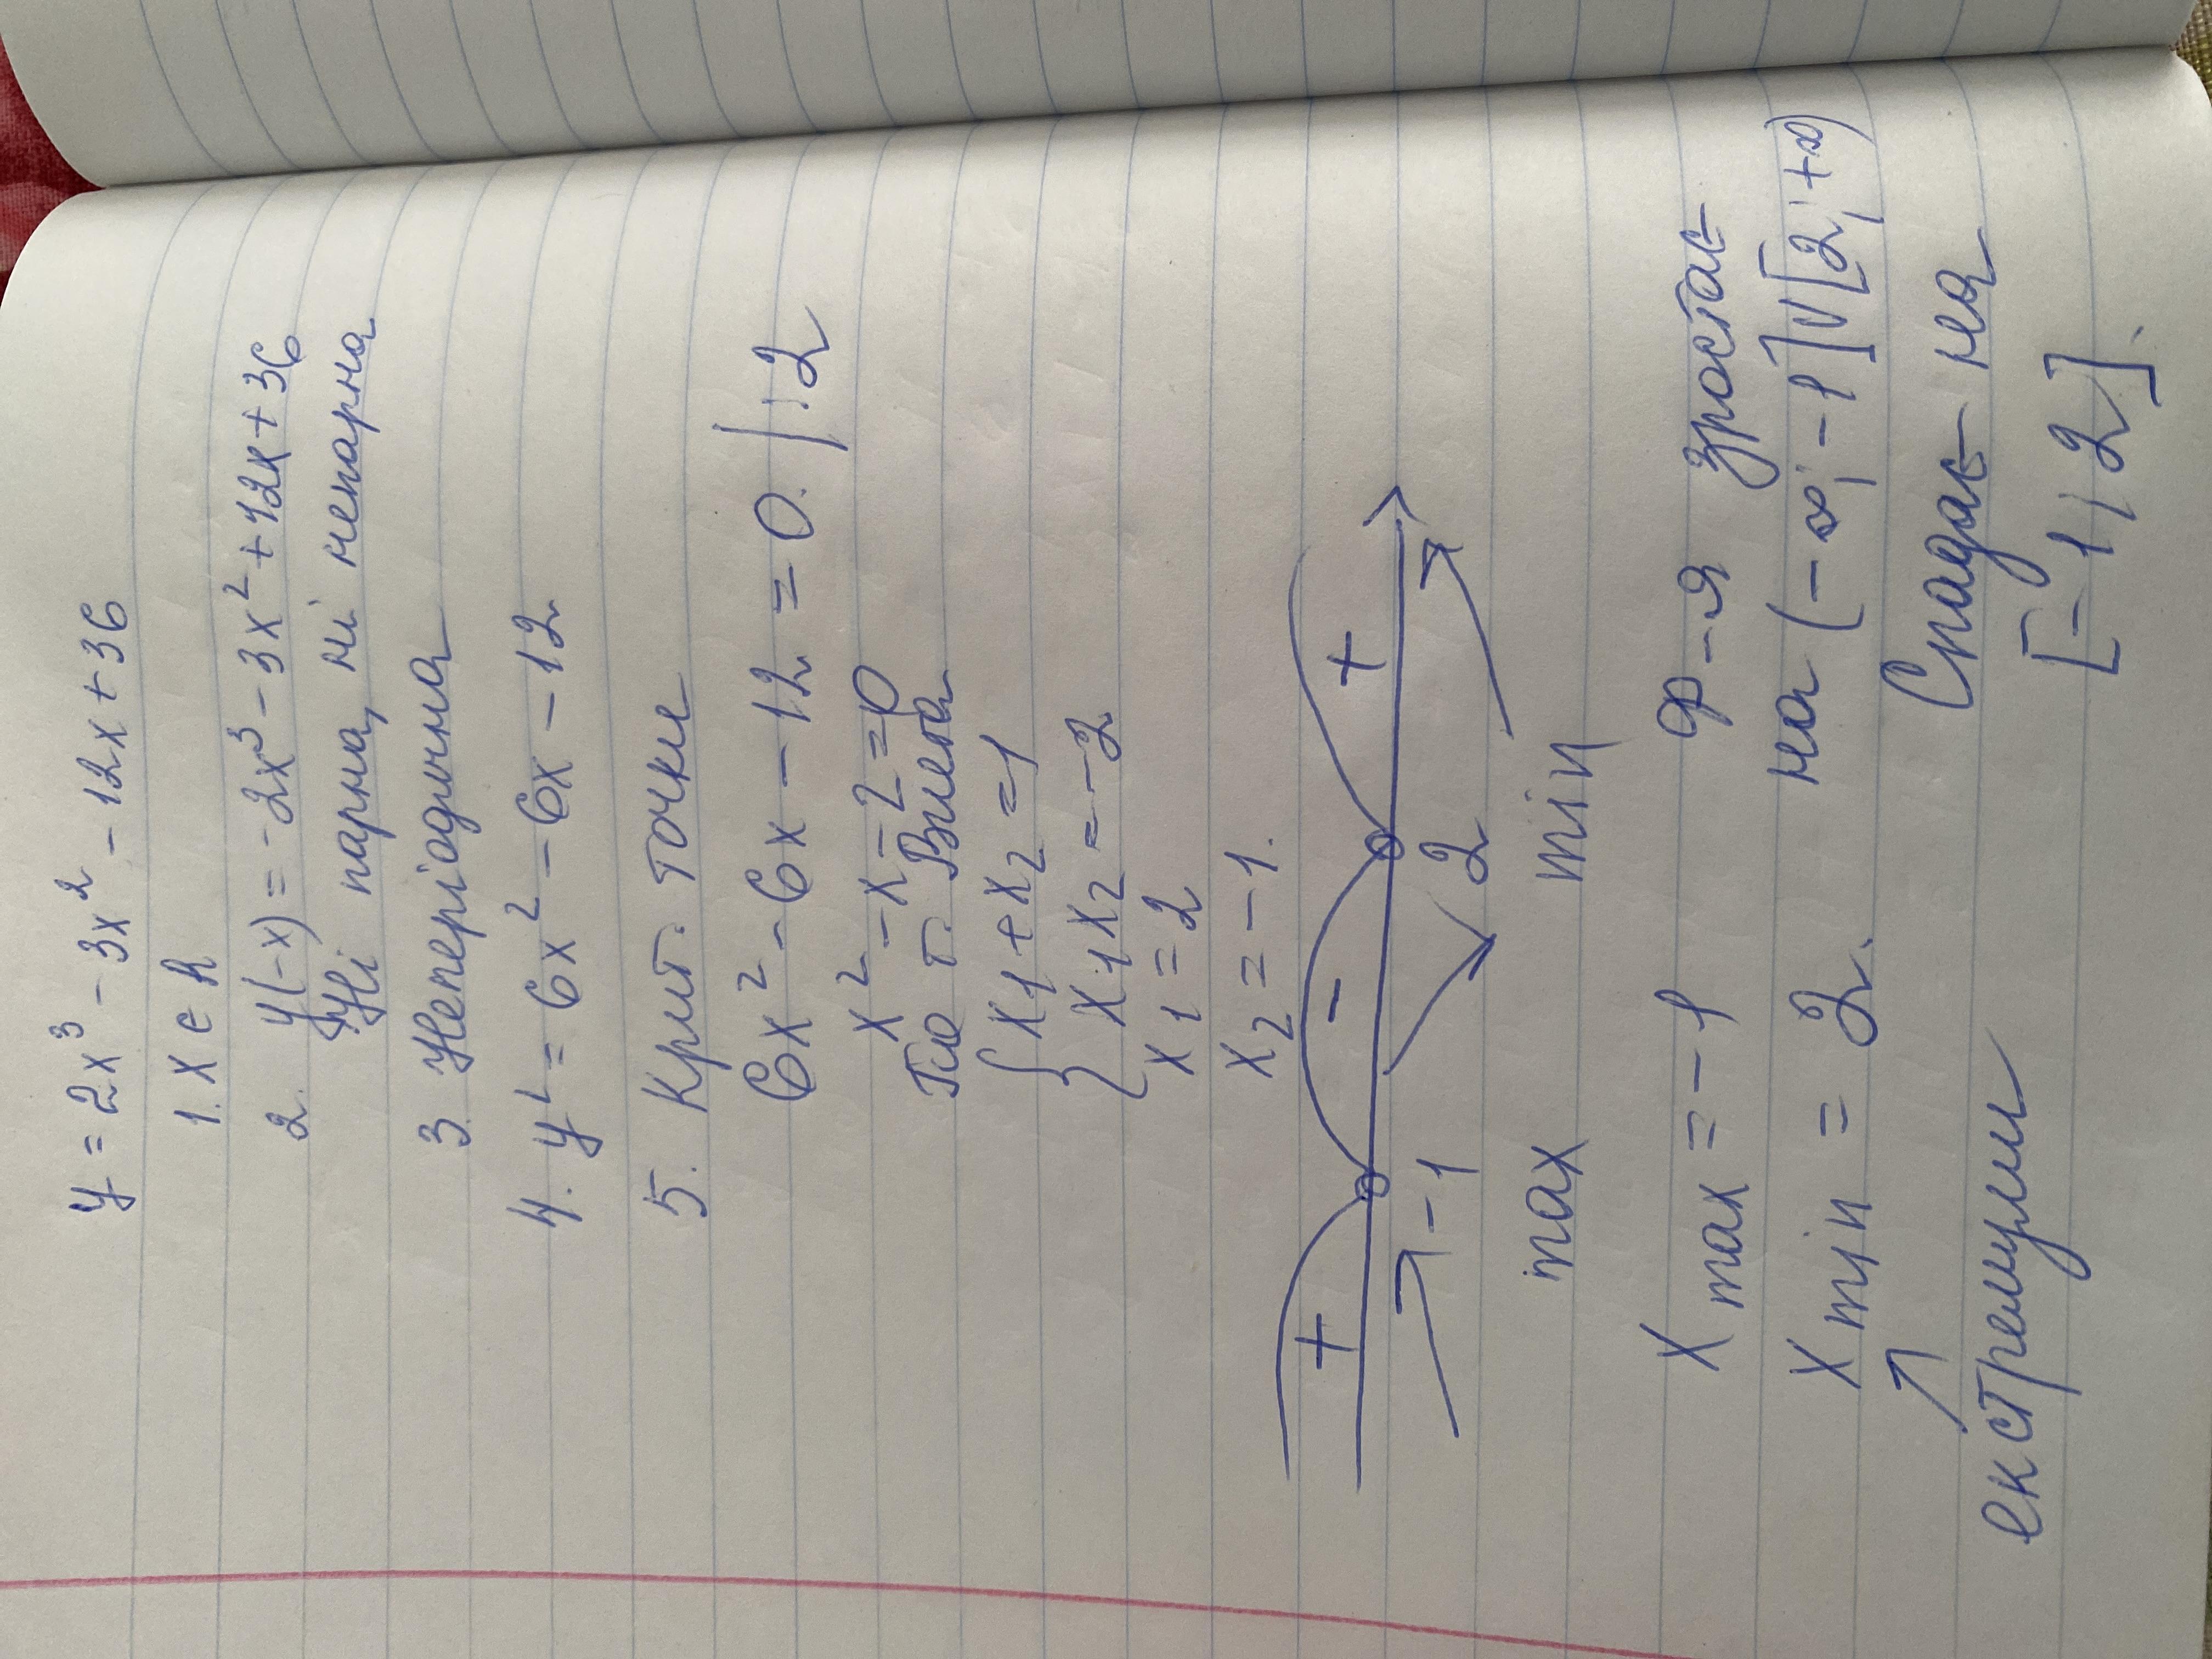 y = 2x³ - 3x² - 12x + 36
1. x ∈ R
2. y(-x) = -2x³ - 3x² + 12x + 36
Ні парна, ні непарна
3. Неперіодична
4. y' = 6x² - 6x - 12
5. Крит. точки
6x² - 6x - 12 = 0. | :2
x² - x - 2 = 0
По т. Виета
{ x1 + x2 = 1
x1x2 = -2
x1 = 2
x2 = -1.
+ - +
-1 2
max min
x max = -1 ф-я зростає
x min = 2. на (-∞; -1] ∪ [2; +∞)
↗ Спадає на
екстремуми [-1; 2].